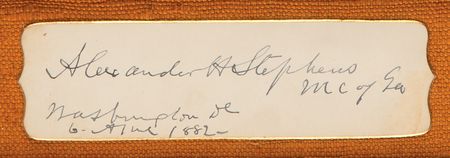 Alexander H Stephens
M C of Ga
Washington DC
6. April 1882